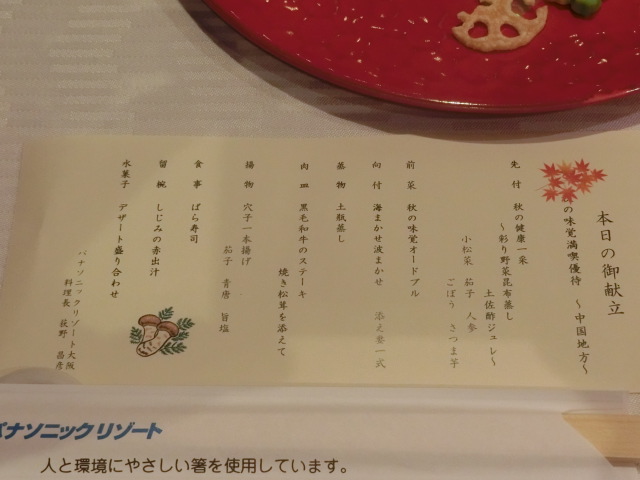 本日の御献立
秋の味覚満喫優待 〜中国地方〜
先付 秋の健康一采
〜彩り野菜昆布蒸し
土佐酢ジュレ〜
小松菜 茄子 人参
ごぼう さつま芋
前菜 秋の味覚オードブル
向付 海まかせ波まかせ 添え妻一式
蒸物 土瓶蒸し
肉皿 黒毛和牛のステーキ
焼き松茸を添えて
揚物 穴子一本揚げ
茄子 青唐 旨塩
食事 ばら寿司
留椀 しじみの赤出汁
水菓子 デザート盛り合わせ
パナソニックリゾート大阪
料理長 荻野 昌彦
パナソニックリゾート
人と環境にやさしい箸を使用しています。